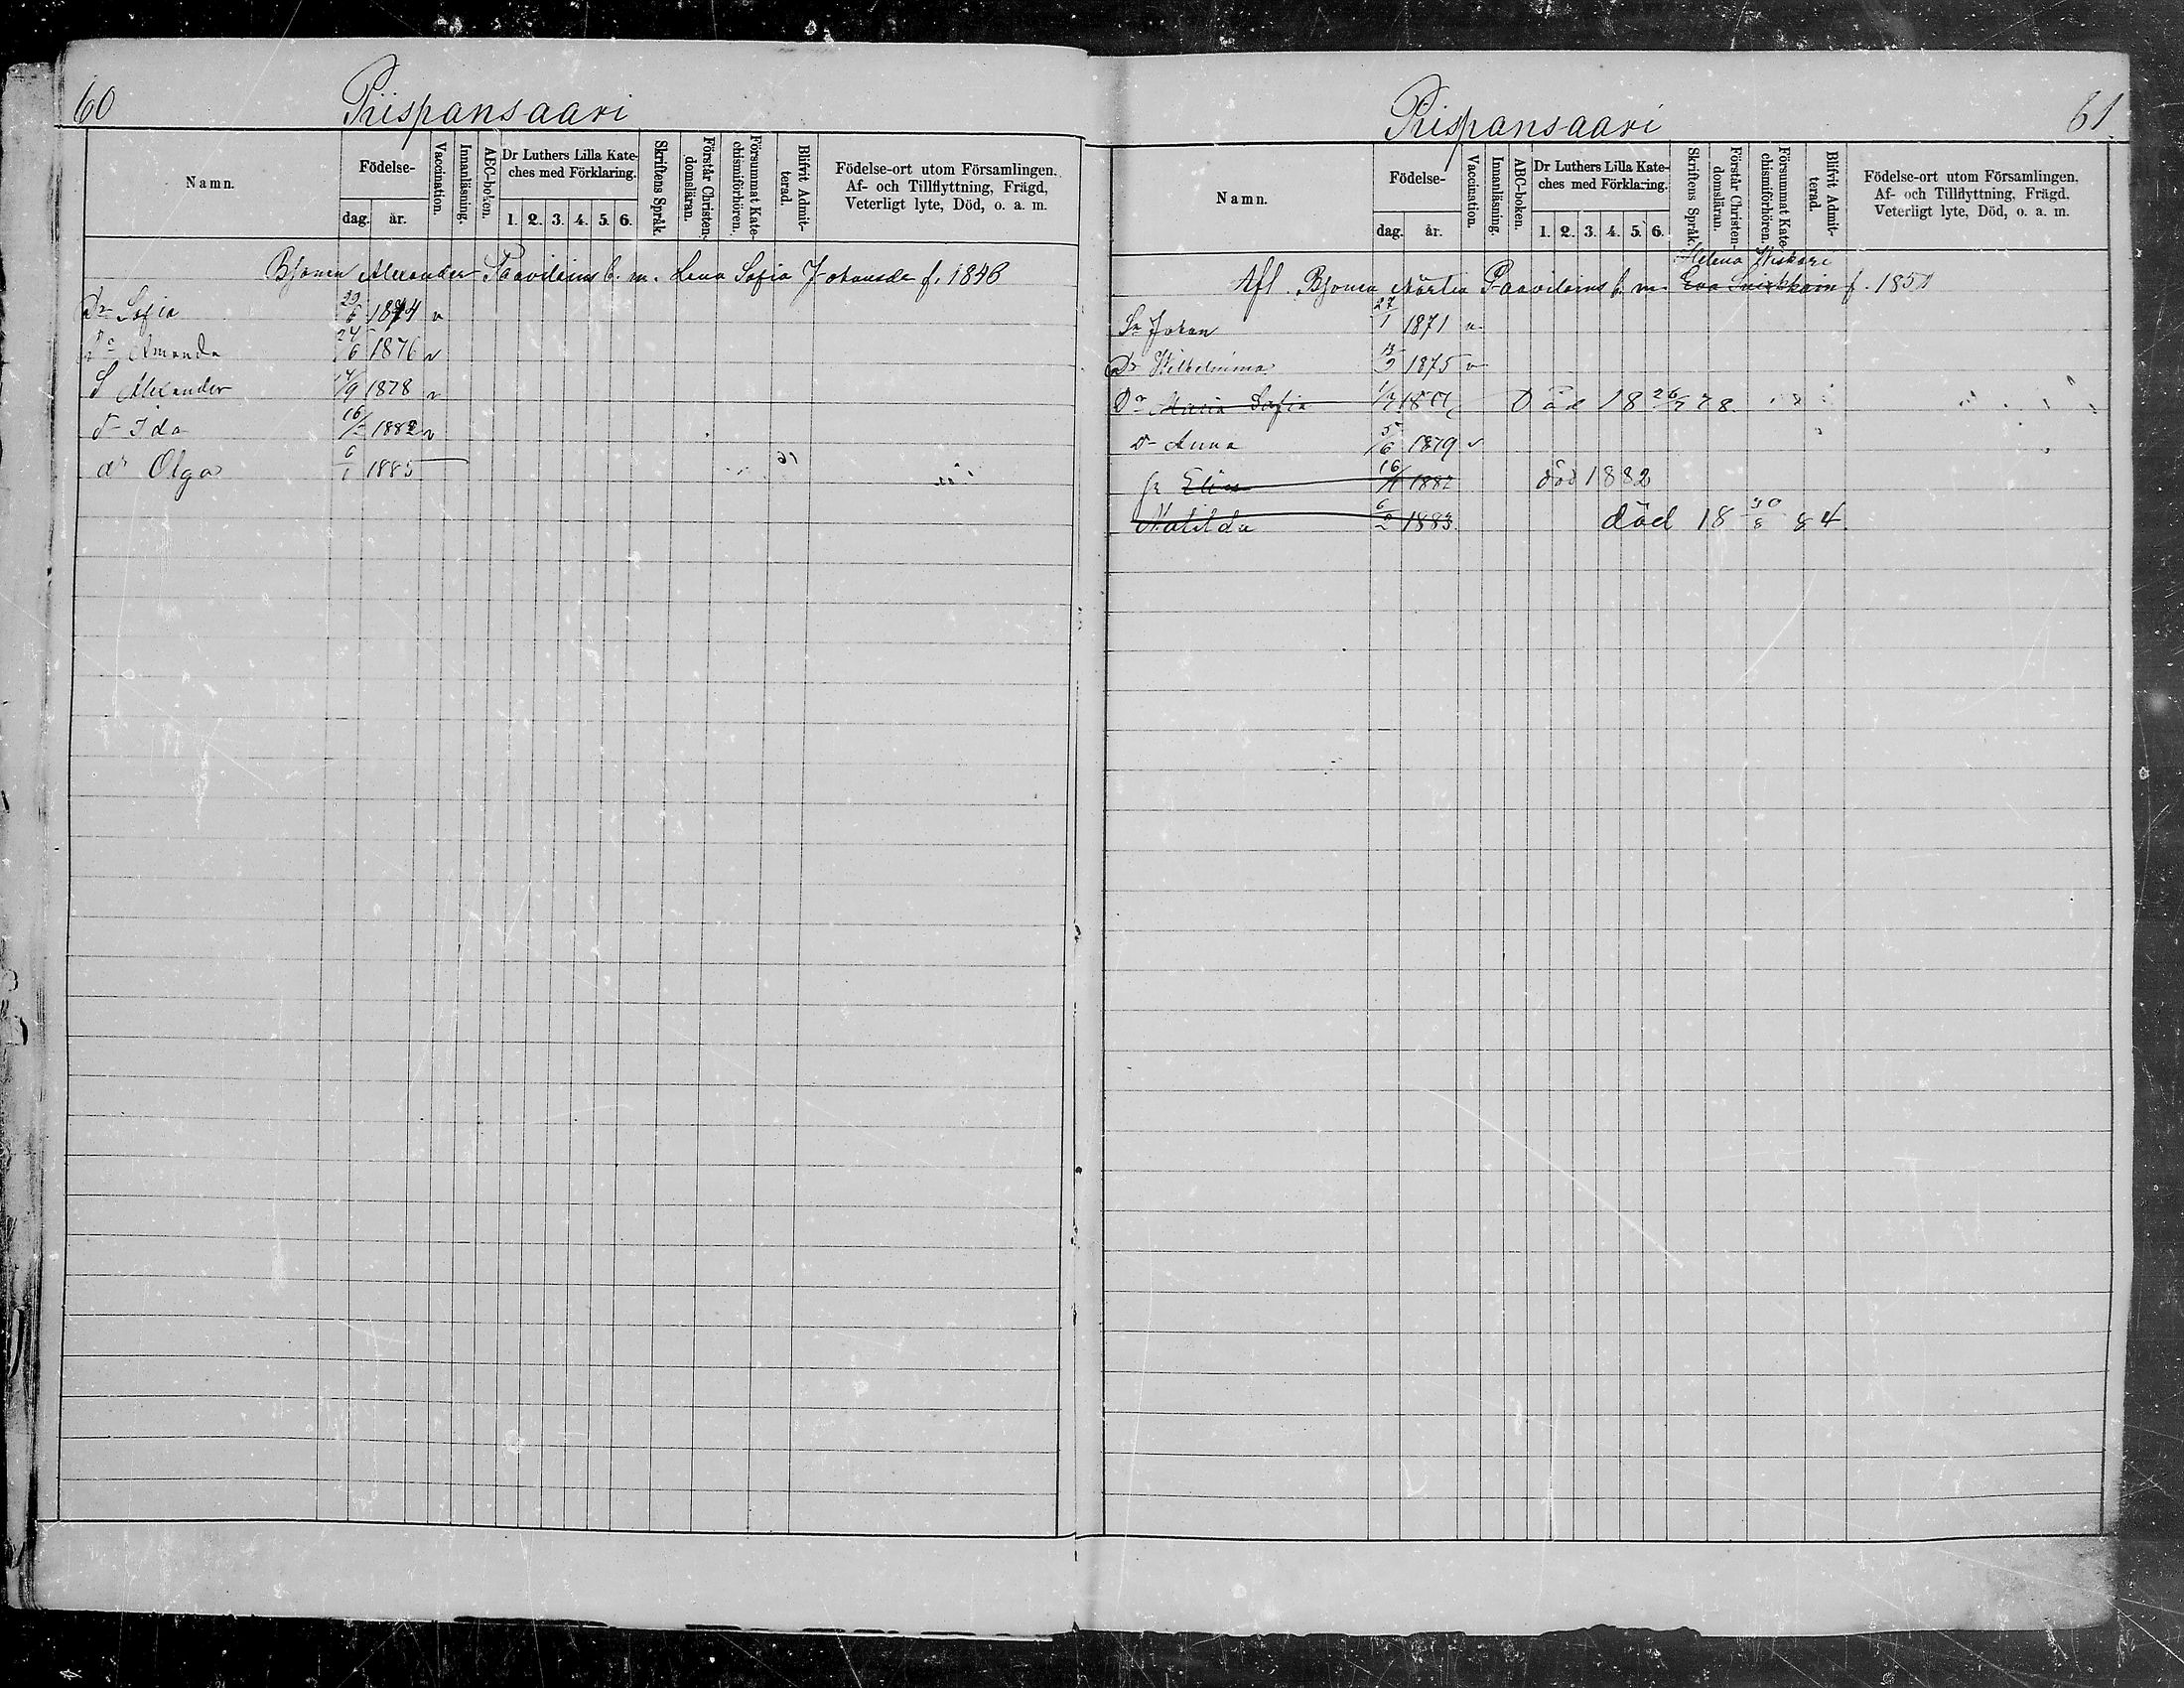 60
Piispansaari
Namn.
Födelse-
dag. år.
Vaccination.
Innanläsning.
ABC-boken.
Dr Luthers Lilla Kate-
ches med Förklaring.
1. 2. 3. 4. 5. 6.
Skriftens Språk.
Förstår Christen-
domsläran.
Försummat Kate-
chismiförhören.
Blifvit Admit-
terad.
Födelse-ort utom Församlingen.
Af- och Tillflyttning, Frägd,
Veterligt lyte, Död, o. a. m.
Alexander Paavilains b. m. Lena Sofia f. 1846
Dr Sofia 1874 v
Dr Amanda 24/6 1876 v
S Alexander 1878 v
dr Ida 1882 v
dr Olga 6/1 1885
Piispansaari
61
Namn.
Födelse-
dag. år.
Vaccination.
Innanläsning.
ABC-boken.
Dr Luthers Lilla Kate-
ches med Förklaring.
1. 2. 3. 4. 5. 6.
Skriftens Språk.
Förstår Christen-
domsläran.
Försummat Kate-
chismiförhören.
Blifvit Admit-
terad.
Födelse-ort utom Församlingen,
Af- och Tillflyttning, Frägd,
Veterligt lyte, Död, o. a. m.
Helena Wiskari
Afl. Paavilains b. m. Eva f. 1851
Sn Johan 27/1 1871 v
Dr Wilhelmina 1875 v
Dr Maria Sofia Död 18 26/7 78
Dr Anna 5/6 1879 v
Elias 1882 död 1882
Matilda 6/2 1883 död 18 30/8 84